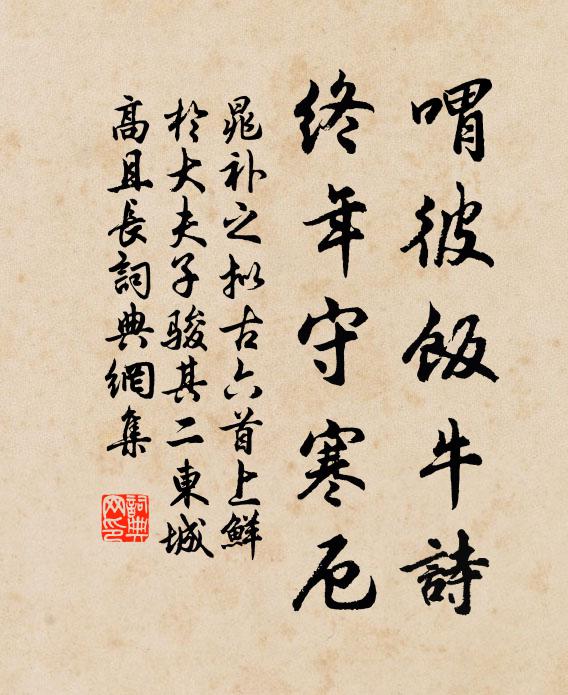 喟彼飯牛詩
終年守寒厄
晁补之拟古六首上鮮
於大夫子駿其二東城
高且長詞典網集
詞典
网印